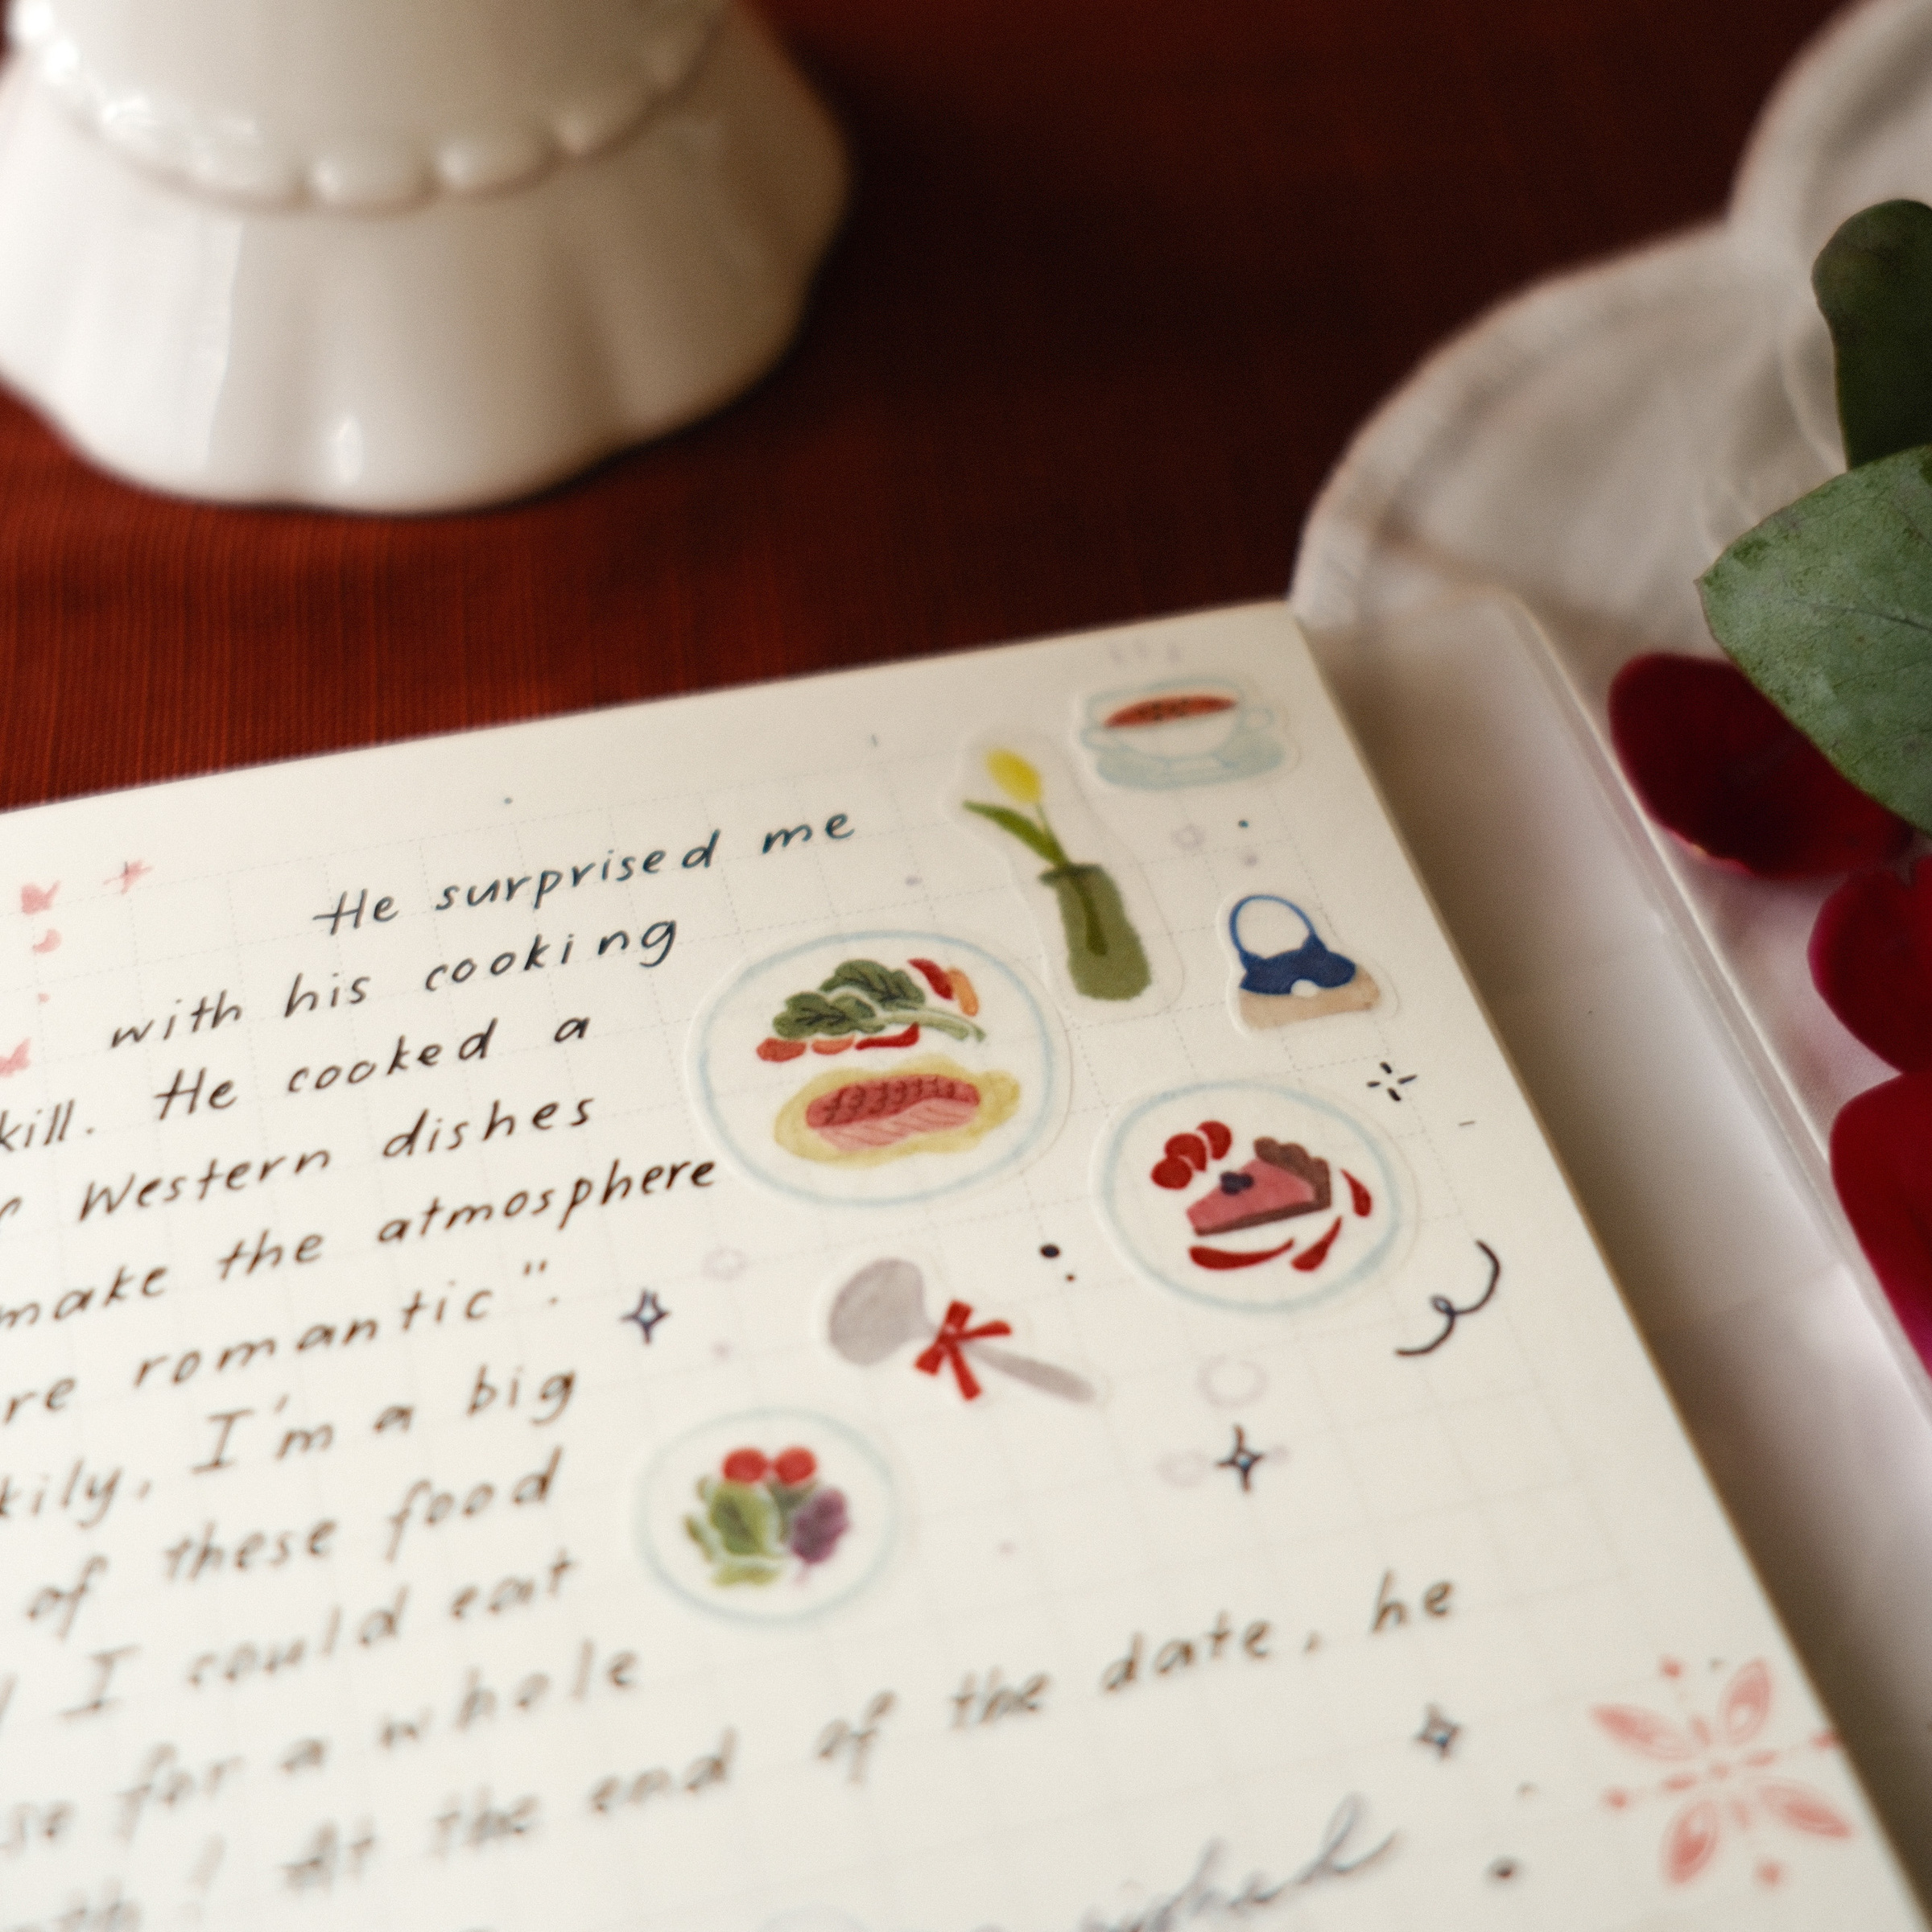 He surprised me
with his cooking
kill. He cooked a
Western dishes
make the atmosphere
re romantic".
kily, I'm a big
of these food
I could eat
se for a whole
th! At the end of the date, he